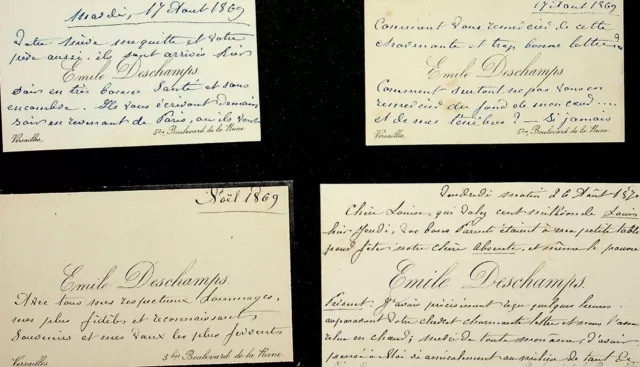 Mardi, 17 Aout 1869
votre mère
père aussi; ils sont arrivés hier
soir en très bonne Santé et sans
Emile Deschamps
encombre. Ils vous écrivent demain
soir en revenant de Paris, où ils vont
Versailles, 5bis Boulevard de la Reine
17 Aout 1869
Comment vous remercier de cette
charmante et trop bonne lettre
Emile Deschamps
Comment surtout ne pas vous en
remercier du fond de mon cœur....
et de mes ténèbres? - Si jamais
Versailles, 5bis Boulevard de la Reine
Noël 1869
Emile Deschamps.
Avec tous mes respectueux hommages,
mes plus fidèles et reconnaissants
Souvenirs et mes vœux les plus fervents
Versailles 5bis Boulevard de la Reine
Vendredi matin 26 Août 1870
Chère Louise, qui valez cent millions de Louis
hier Jeudi, vos bons Parents étaient à ma petite table
pour fêter notre chère Absente, et même le pauvre
Emile Deschamps.
J'avais précisément reçu quelques heures
auparavant votre chère et charmante lettre et nous l'avons
relue en chœur; merci de toute mon âme, d'avoir
pensé à Moi si amicalement au milieu de tant de